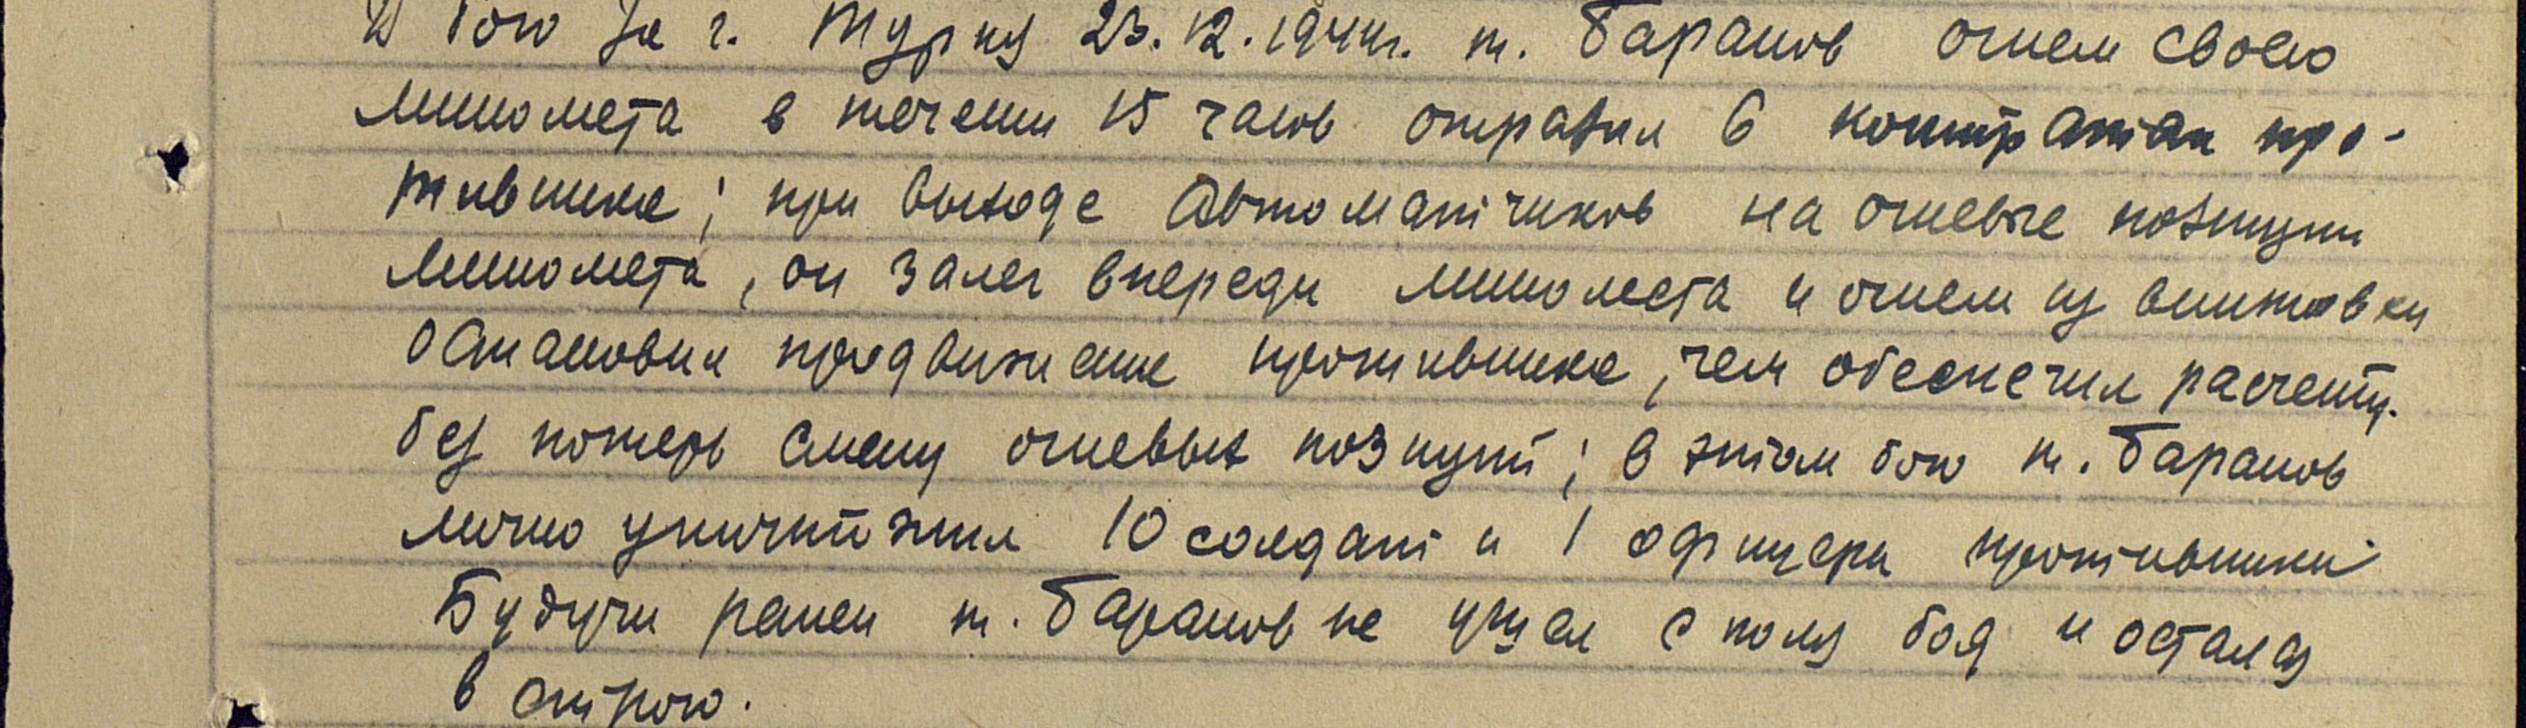 В бою за г. Турня 23.12.1944г. т. Баранов огнем своего
миномета в течении 15 часов отразил 6 контратак про-
тивника; при выходе автоматчиков на огневые позиции
миномета, он залег впереди миномета и огнем из винтовки
остановил продвижение противника, чем обеспечил расчету
без потерь смену огневых позиций; в этом бою т. Баранов
лично уничтожил 10 солдат и 1 офицера противника
Будучи ранен т. Баранов не ушел с поля боя и остался
в строю.